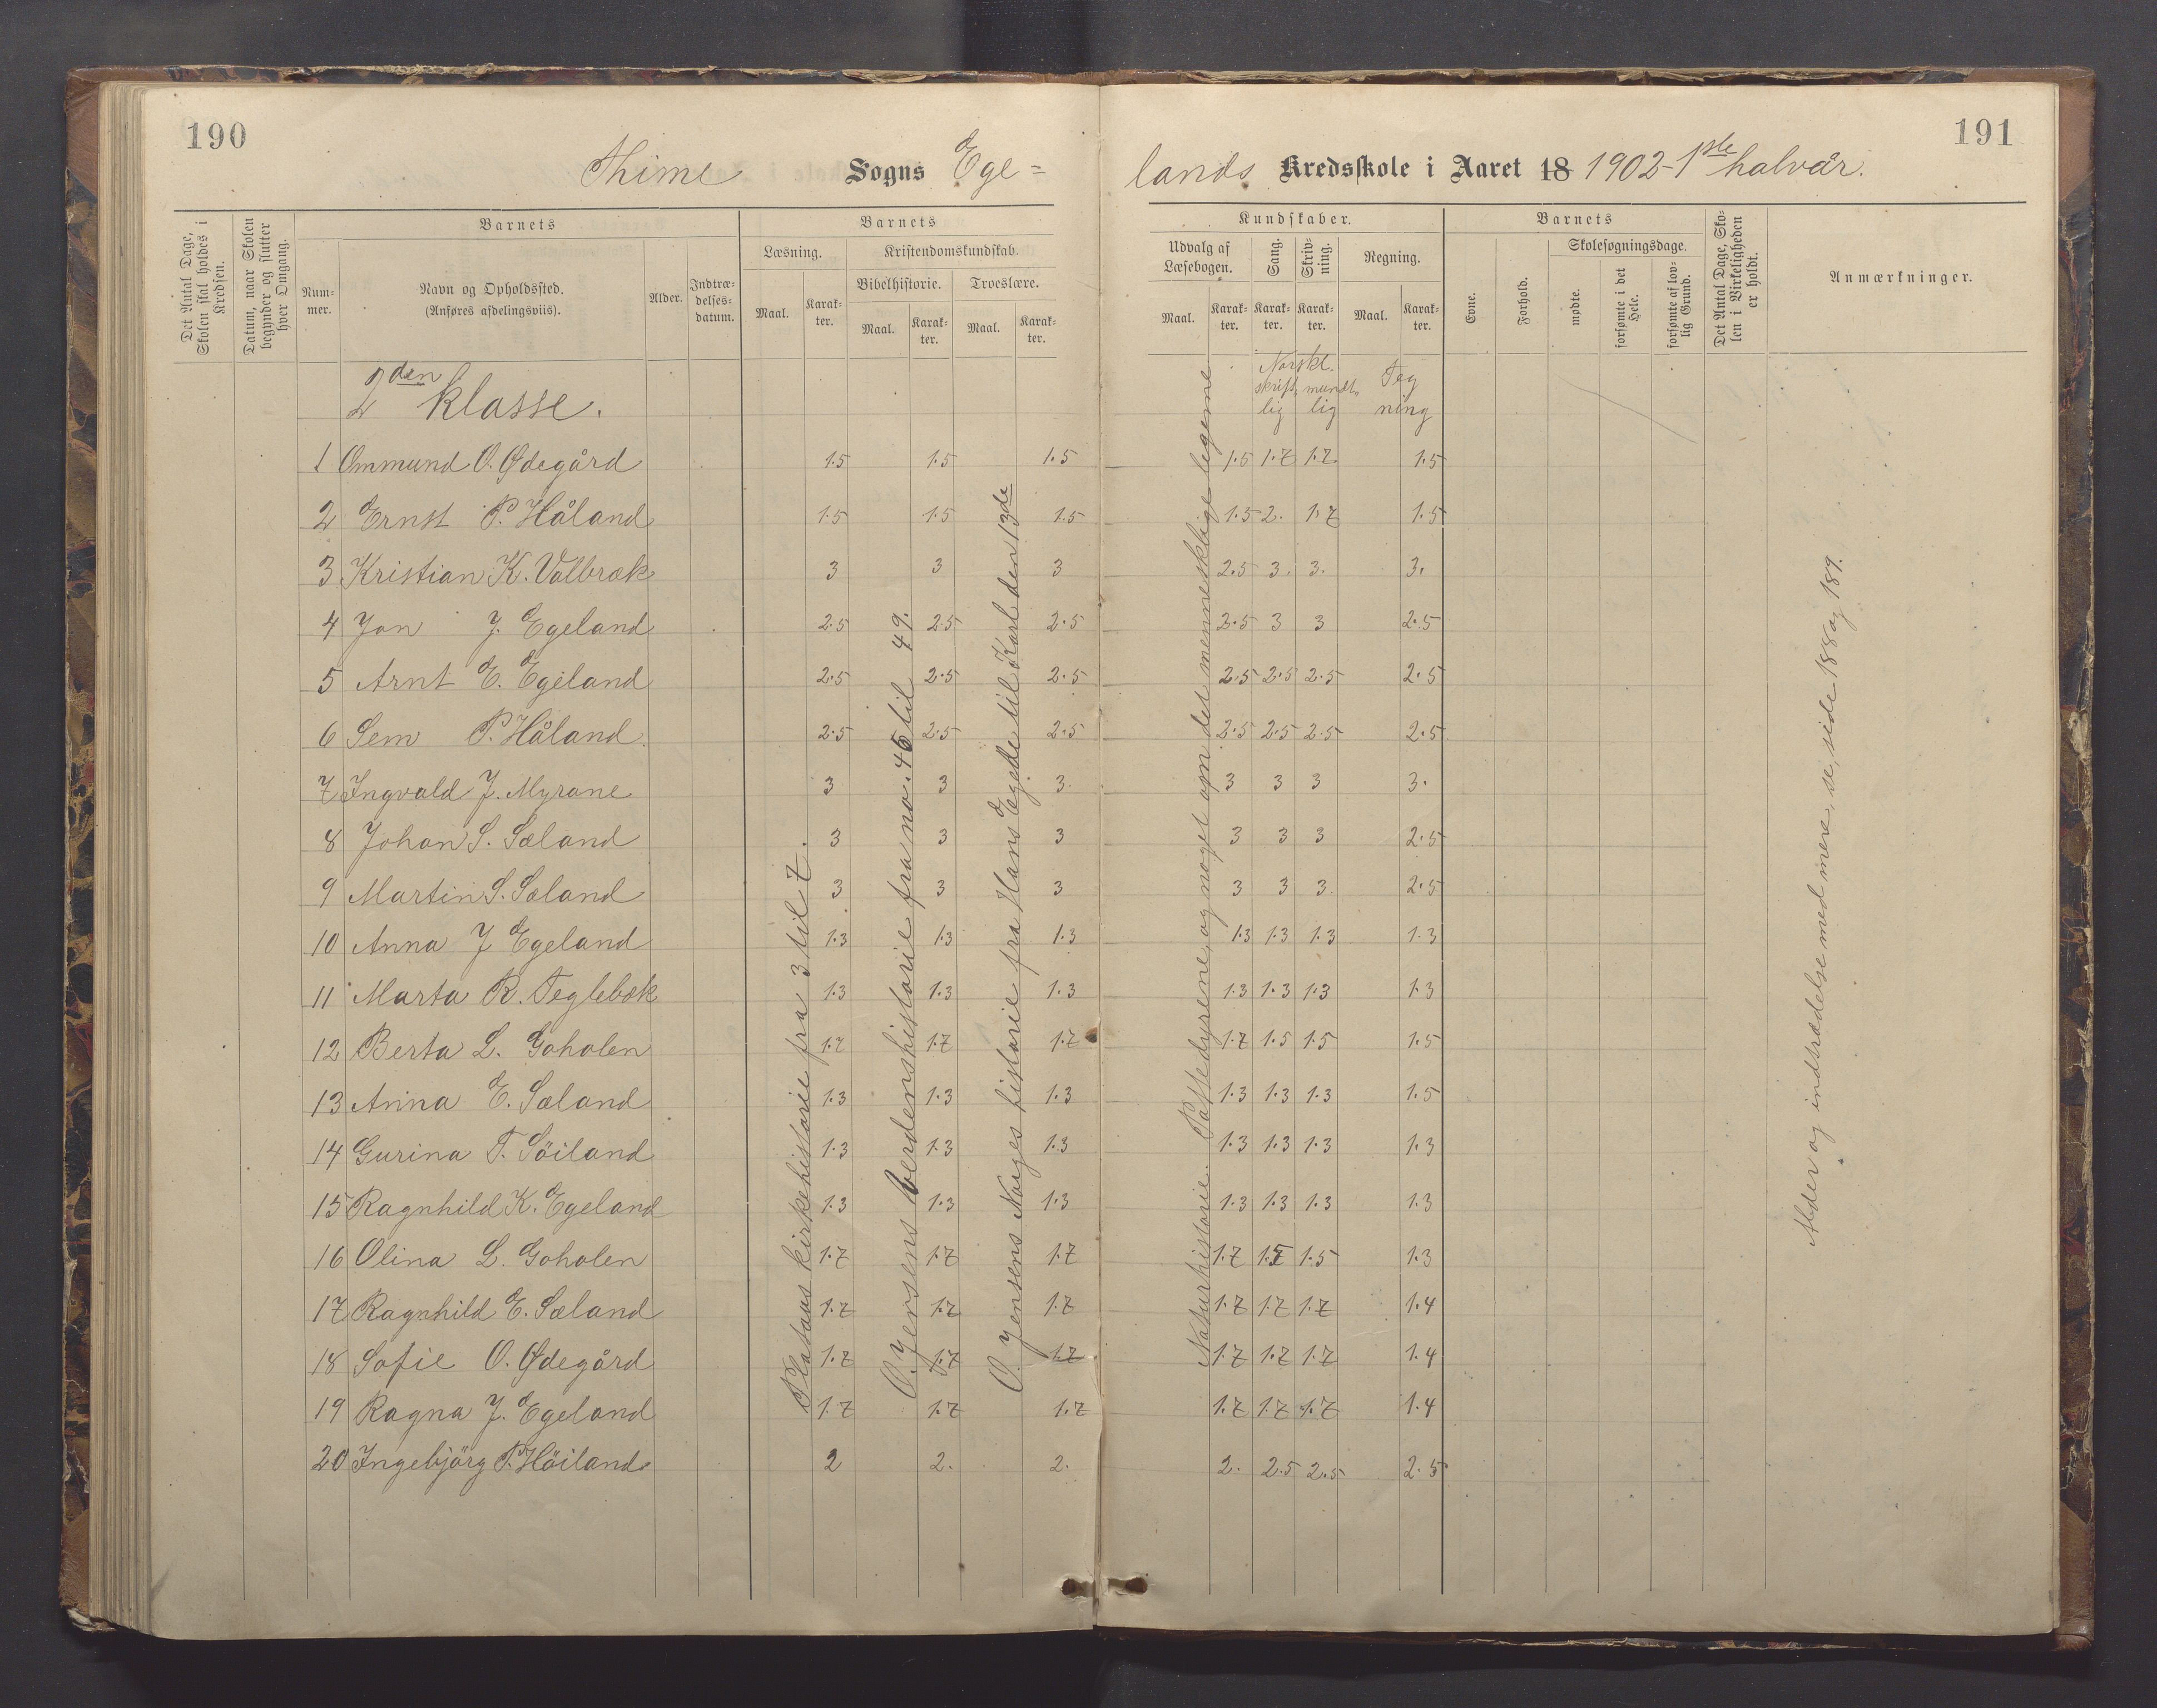 190
191
Thime Sogns Ege=
lands Kredsskole i Aaret 18 1902 - 1ste halvår.
Det Antal Dage, Skolen skal holdes i Kredsen.
Datum, naar Skolen begynder og slutter hver Omgang.
Barnets
Num-mer.
Navn og Opholdssted.
(Anføres afdelingsviis).
Alder.
Indtræ-delses-datum.
Barnets
Læsning.
Kristendomskundskab.
Bibelhistorie.
Troeslære.
Maal. Karak-ter. Maal. Karak-ter. Maal. Karak-ter.
Kundskaber.
Udvalg af Læsebogen. Sang. Skriv-ning. Regning.
Maal. Karak-ter. Karak-ter. Karak-ter. Maal. Karak-ter.
Barnets
Evne. Forhold.
Skolesøgningsdage.
mødte. forsømte i det Hele. forsømte af lov-lig Grund.
Det Antal Dage, Sko-len i Virkeligheden er holdt.
Anmærkninger.
2den klasse.
Norske.
skrift- mundt-
lig lig
Teg
ning
1 Ommund O. Ødegård 1.5 1.5 1.5 1.5 1.7 1.7 1.5
2 Ernst P. Håland 1.5 1.5 1.5 1.5 2. 1.7 1.5
3 Kristian K. Valbræk 3 3 3 2.5 3. 3. 3.
4 Jon J. Egeland 2.5 2.5 2.5 2.5 3 3 2.5
5 Arnt E. Egeland 2.5 2.5 2.5 2.5 2.5 2.5 2.5
6 Sem P. Håland. 2.5 2.5 2.5 2.5 2.5 2.5 2.5
7 Ingvald J. Myrane 3 3 3. 3 3 3 3.
8 Johan S. Sæland 3 3 3 3 3 3 2.5
9 Martin S. Sæland 3 3 3 3 3 3. 2.5
10 Anna J Egeland 1.3 1.3 1.3 1.3 1.3 1.3 1.3
11 Marta R. Teglebæk 1.3 1.3 1.3 1.3 1.3 1.3 1.3
12 Berta L. Goholen 1.7 1.7 1.7 1.7 1.5 1.5 1.5
13 Anna E. Sæland 1.3 1.3 1.3 1.3 1.3 1.3 1.5
14 Gurina T. Söiland 1.3 1.3 1.3 1.3 1.3 1.3 1.3
15 Ragnhild K. Egeland 1.3 1.3 1.3 1.3 1.3 1.3 1.3
16 Olina L. Goholen 1.7 1.7 1.7 1.7 1.5 1.5 1.3
17 Ragnhild E. Sæland 1.7 1.7 1.7 1.7 1.7 1.7 1.4
18 Sofie O. Ødegård 1.7 1.7 1.7 1.7 1.7 1.7 1.4
19 Ragna J. Egeland 1.7 1.7 1.7 1.7 1.7 1.7 1.4
20 Ingebjörg P. Höiland 2 2. 2. 2. 2.5 2.5 2.5
kirkehistorie fra 3 til 7.
O. Jensens verdenshistorie fra no. 45 til 49.
O. Jensens Norges historie fra Hans Egede til Karl den 13de
Naturhistorie. Pattedyrene, og noget om det menneskelige legeme
Alder og indtrædelse med mere, se, side 188 og 189.